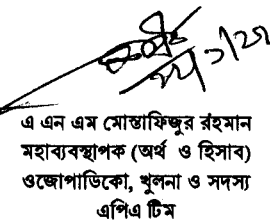 এ এন এম মোস্তাফিজুর রহমান
মহাব্যবস্থাপক (অর্থ ও হিসাব)
ওজোপাডিকো, খুলনা ও সদস্য
এপিএ টিম